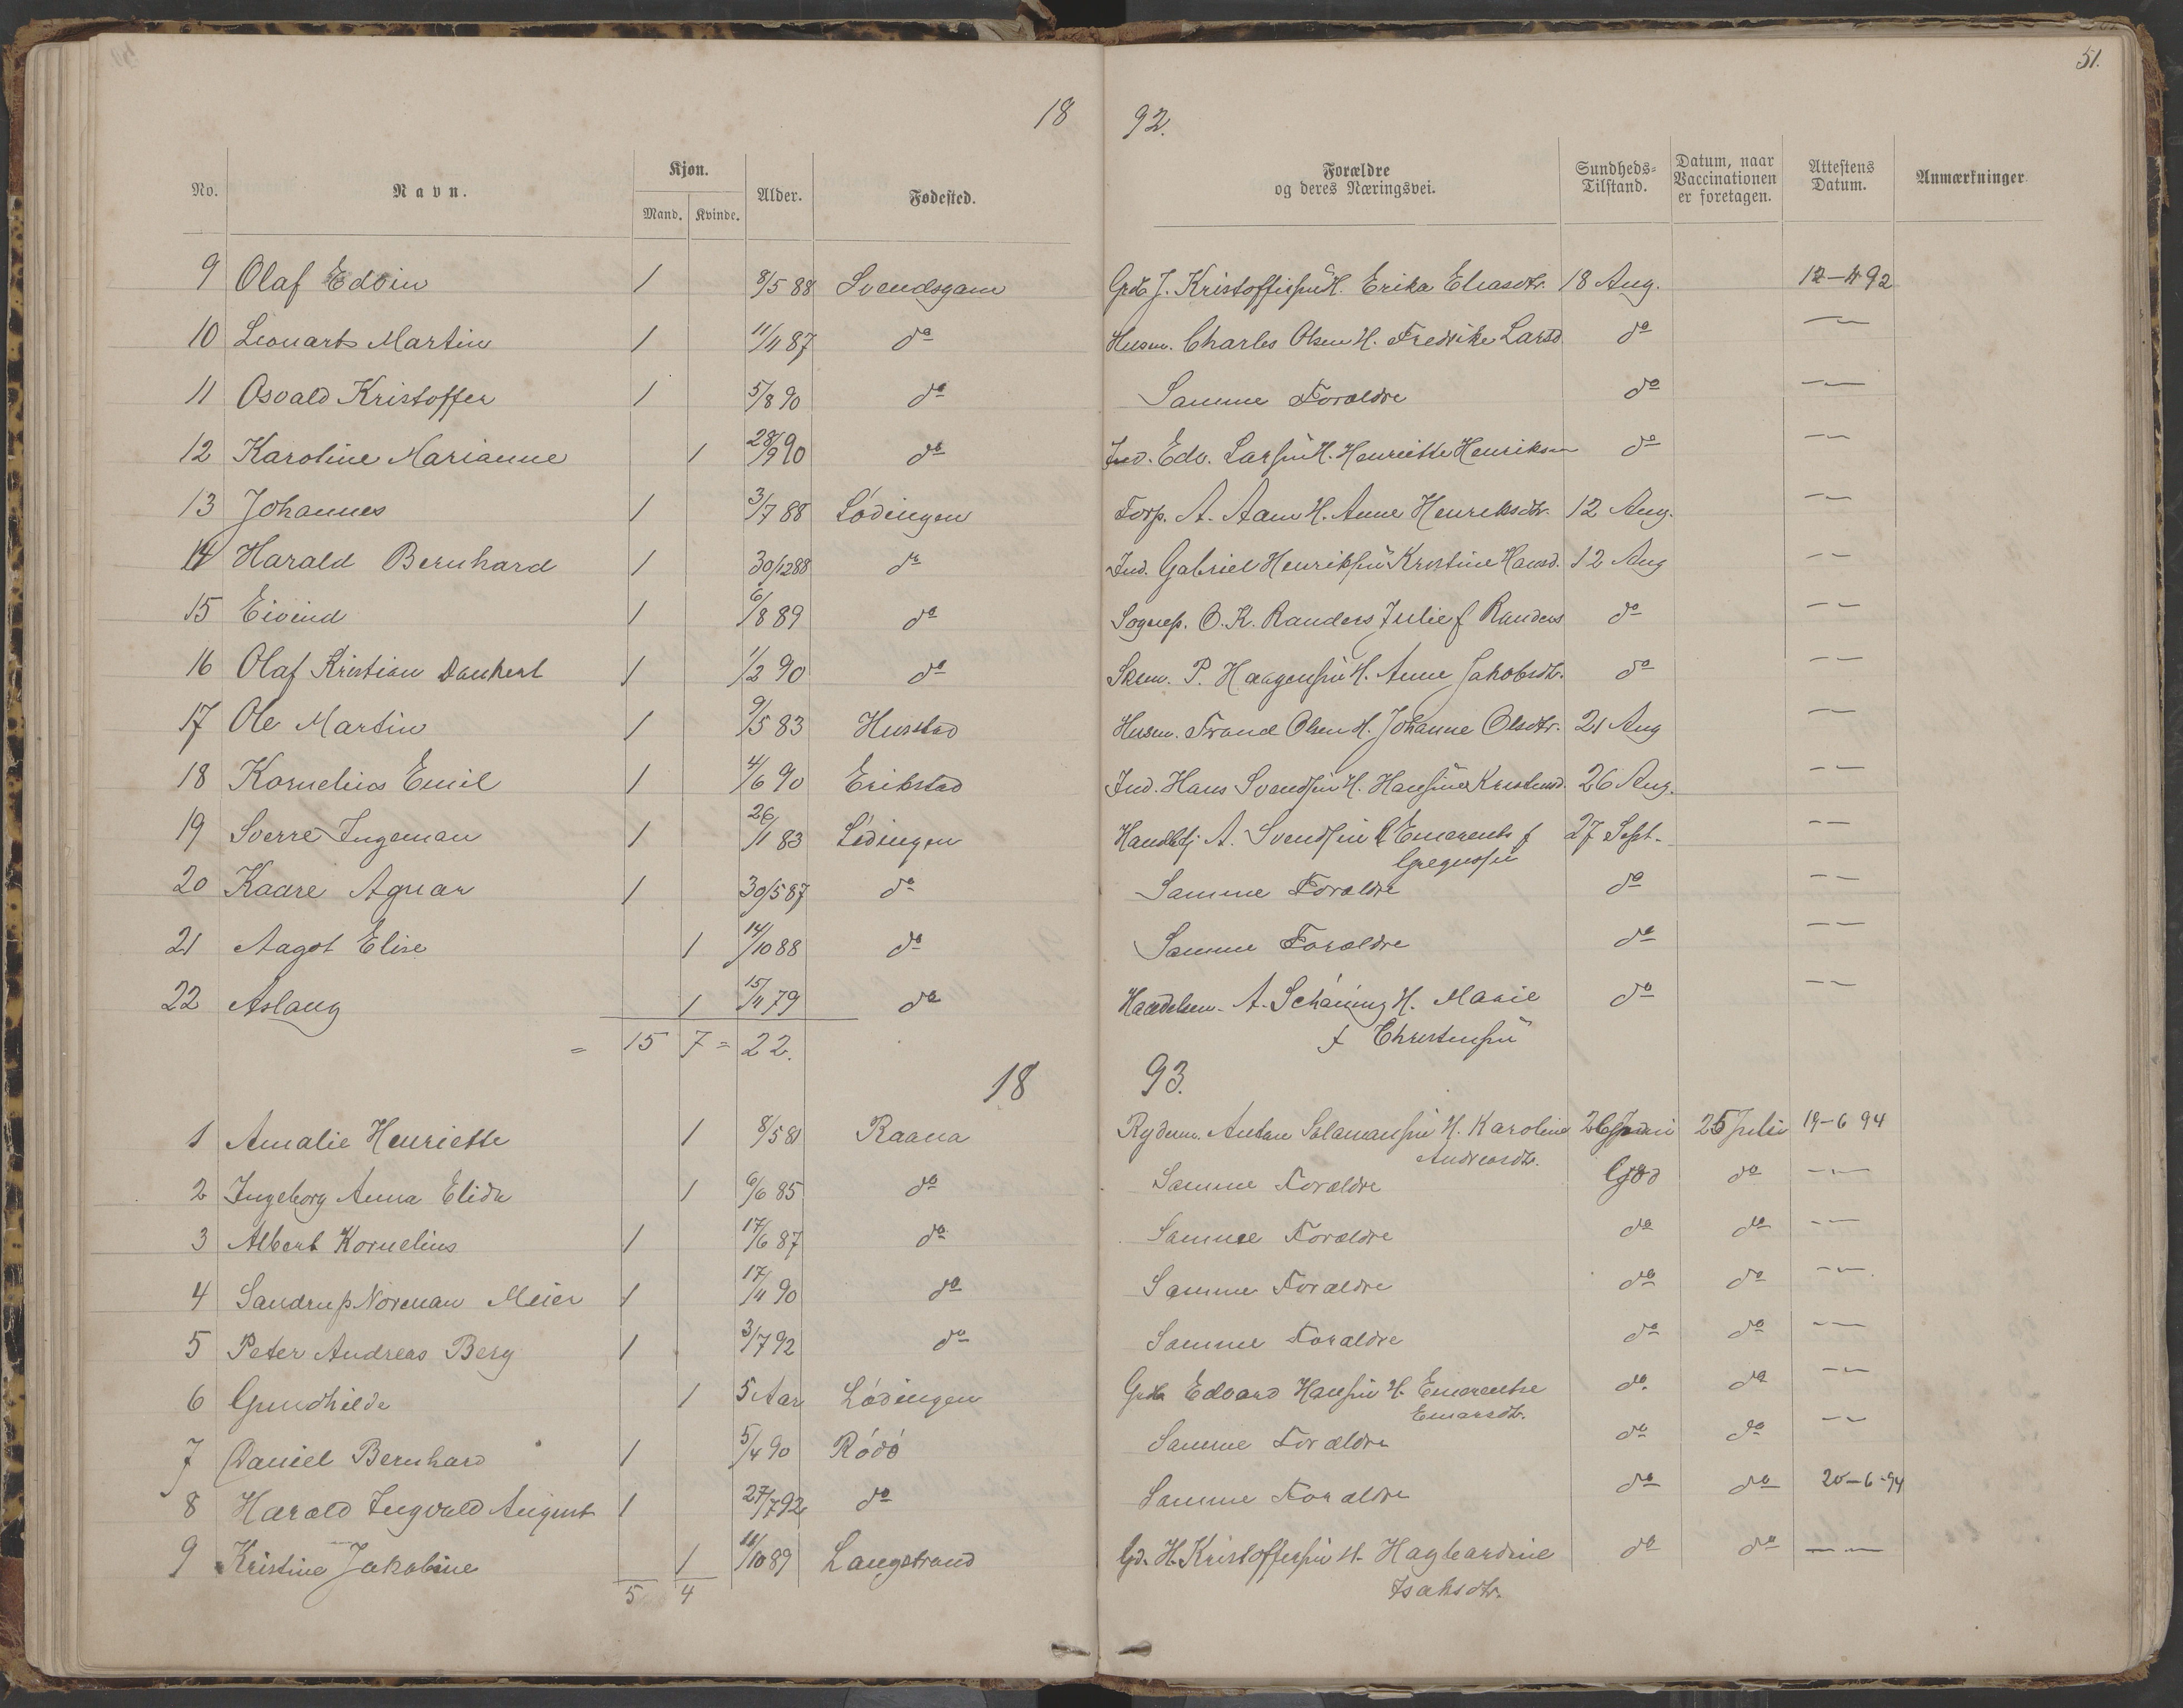 51.
18 92.
No. Navn. Kjøn. Mand. Kvinde. Alder. Fødested. Forældre og deres Næringsvei. Sundheds-Tilstand. Datum, naar Vaccinationen er foretagen. Attestens Datum. Anmærkninger.
9 Olaf Edvin 1 8/5 88 Svendsgam Grdb J. Kristoffersen H. Erika Eliasdtr. 18 Aug. 12-4 92
10 Leonarts Martin 1 11/11 87 do Husm. Charles Olsen H. Fredrike Larsd do — —
11 Osvald Kristoffer 1 5/8 90 do Samme Forældre do — —
12 Karoline Marianne 1 28/9 90 do Ind. Edv. Larssen H. Henriette Henriksen do — —
13 Johannes 1 3/7 88 Lødingen Forp. A. Aam H. Anne Henriksdtr. 12 Aug. — —
14 Harald Bernhard 1 30/12 88 do Ind. Gabriel Henrikssen Kristine Hansd. 12 Aug — —
15 Eivind 1 6/8 89 do Sognep. O. K. Randers Julie f Randers do — —
16 Olaf Kristian Dankert 1 1/2 90 do P. Haagenssen H. Anne Jakobsdtr. do — —
17 Ole Martin 1 9/5 83 Husstad Husm. Olsen H. Johanne Olsdtr. 21 Aug — —
18 Kornelius Emil 1 4/6 90 Erikstad Ind. Hans Svendsen H. Hansine Kristensd. 26 Aug. — —
19 Sverre Ingeman 1 26/11 83 Lødingen A. Svendsen Emerentse f 27 Sept. — —
Gregussen
20 Kaare Agnar 1 30/5 87 do Samme Forældre do — —
21 Aagot Elise 1 14/10 88 do Samme Forældre do — —
22 Aslaug 1 15/11 79 do Handelsm. A. Schøning H. Marie do — —
f Christensen
= 15 7 = 22.
18 93.
1 Amalie Henriette 1 8/5 81 Raana Rydnm. Anton Salamonsen H. Karoline 26 Juni 25 Juli 19-6 94
Andreasdtr.
2 Ingeborg Anna Elida 1 6/6 85 do Samme Forældre God do — —
3 Albert Kornelius 1 17/6 87 do Samme Forældre do do — —
4 Sandrup Norman Meier 1 17/11 90 do Samme Forældre do do — —
5 Peter Andreas Berg 1 3/7 92 do Samme Forældre do do — —
6 Gundhilde 1 5 Aar Lødingen Grdb Edvard Hanssen H. Emerentse do. do — —
Emarsdtr.
7 Daniel Bernhard 1 5/4 90 Rødø Samme Forældre do do — —
8 Harald Ingvald August 1 27/7 92 do Samme Forældre do do 20-6-94
9 Kristine Jakobine 1 11/10 89 Langstrand Gd. H. Kristoffersen H. Hagbardine do do — —
Isaksdtr.
5 4